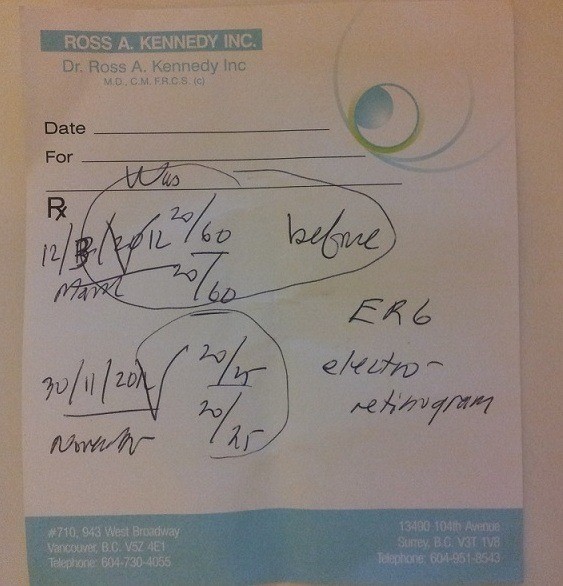 ROSS A. KENNEDY INC.
Dr. Ross A. Kennedy Inc
M.D., C.M. F.R.C.S. (c)
Date
For
Was
Rx
12/3/2012 20/60 before
March 20/60
ERG
30/11/2012 20/25 electro-
20/25 retinogram
November
#710, 943 West Broadway
Vancouver, B.C. V5Z 4E1
Telephone: 604-730-4055
13490 104th Avenue
Surrey, B.C. V3T 1V8
Telephone: 604-951-8543